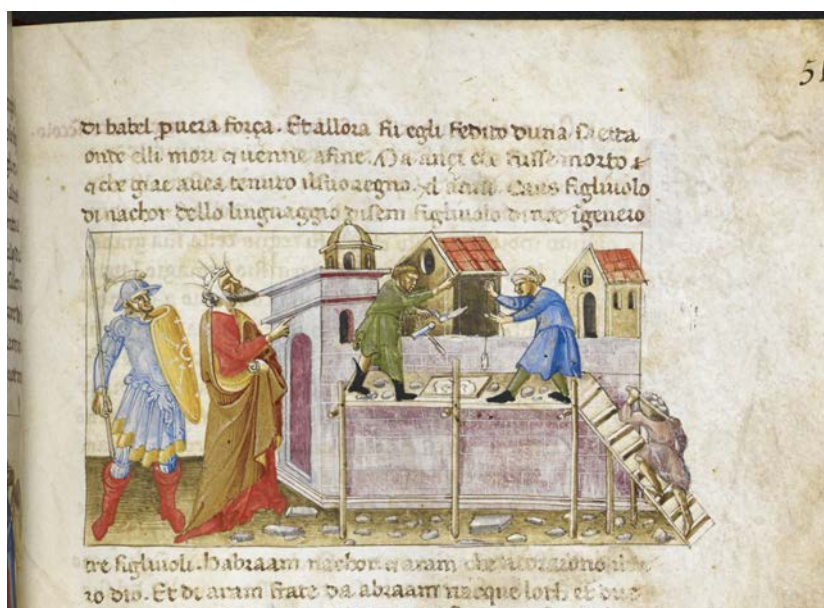 51
di babel p vera força. Et allora fu egli fedito duna saetta
onde elli mori et venne a fine. Ma ançi che fusse morto
che gia avea tenuto il suo regno. figliuolo
di nachor dello linguaggio di sem figliuolo di noe igenero
tre figliuoli. habraam nachor et aram che
ro dio. Et di aram frate da abraam nacque loth et due